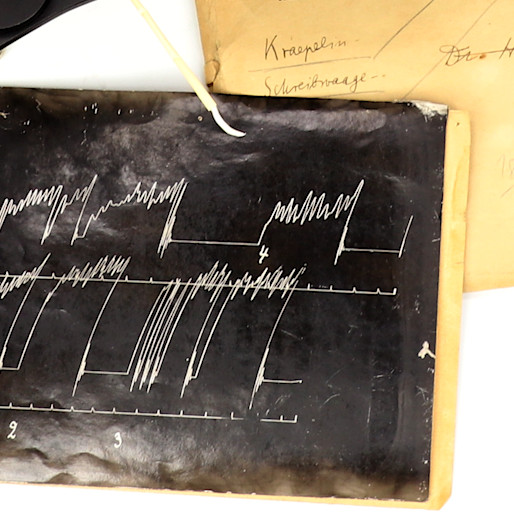 Kraepelin
Dr. H
Schreibwaage
4
2
3